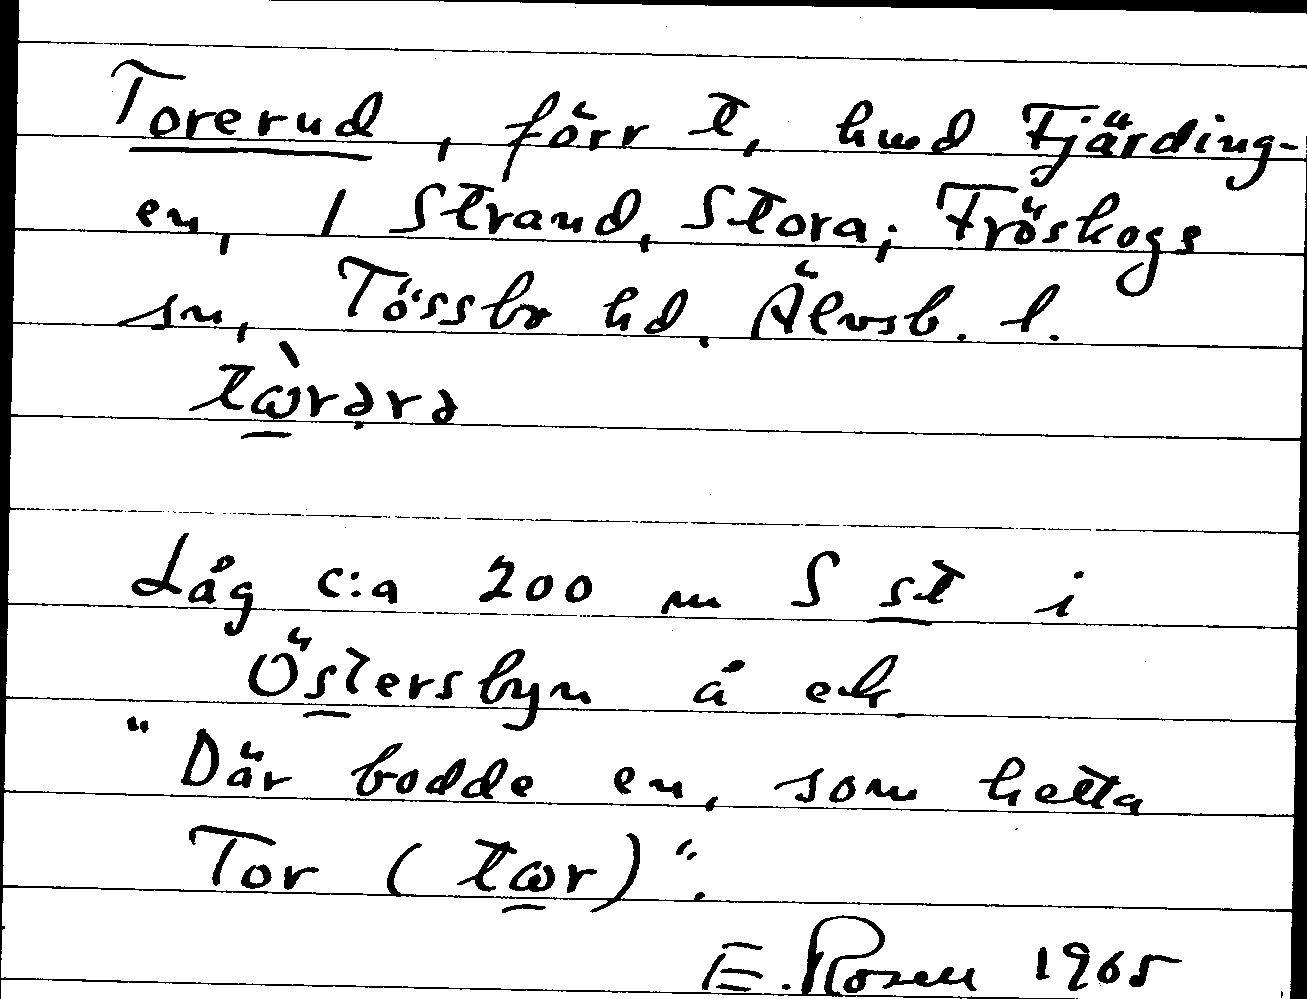 Torerud, förr t, hmd Fjärding-
en, 1 Strand, Stora; Fröskogs
sn, Tössbo hd, Älvsb. l.
tὼrərə
Låg c:a 200 m S st i
Östersbyn å ek
"Där bodde en, som hetta
Tor (tωr)".
E. Rosell 1965